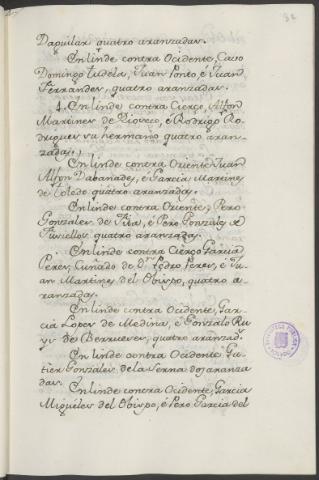 Daguilar quatro aranzadas.
En linde contra Ocidente, Cauo
Domingo tudela, Juan Ponto, e Juan
Ferrandes, quatro aranzadas.
En linde contra Cierço, Alfon
Martines de Rioseco, e Rodrigo Ro-
drigues su hermano quatro aran-
zadas.
En linde contra Oriente Juan
Alfon Dabanades, e Garcia Martines
de toledo quatro aranzadas.
En linde contra Oriente, Pero
Gonzales de Fita, e Pero Gonzales de
quatro aranzadas.
En linde contra Cierço Garcia
Peres, Cuñado de Dn. Pedro Peres, e Ju-
an Martines del Obispo, quatro a-
ranzadas.
En linde contra Ocidente, Gar-
cia Lopes de Medina, e Gonzalo Ru-
ys de quatro aranzads.
En linde contra Ocidente Gu-
tier Gonzales dela Serna dos aranza
das.
En linde contra Ocidente, Garcia
Migueles del Obispo, e Pero Garcia del